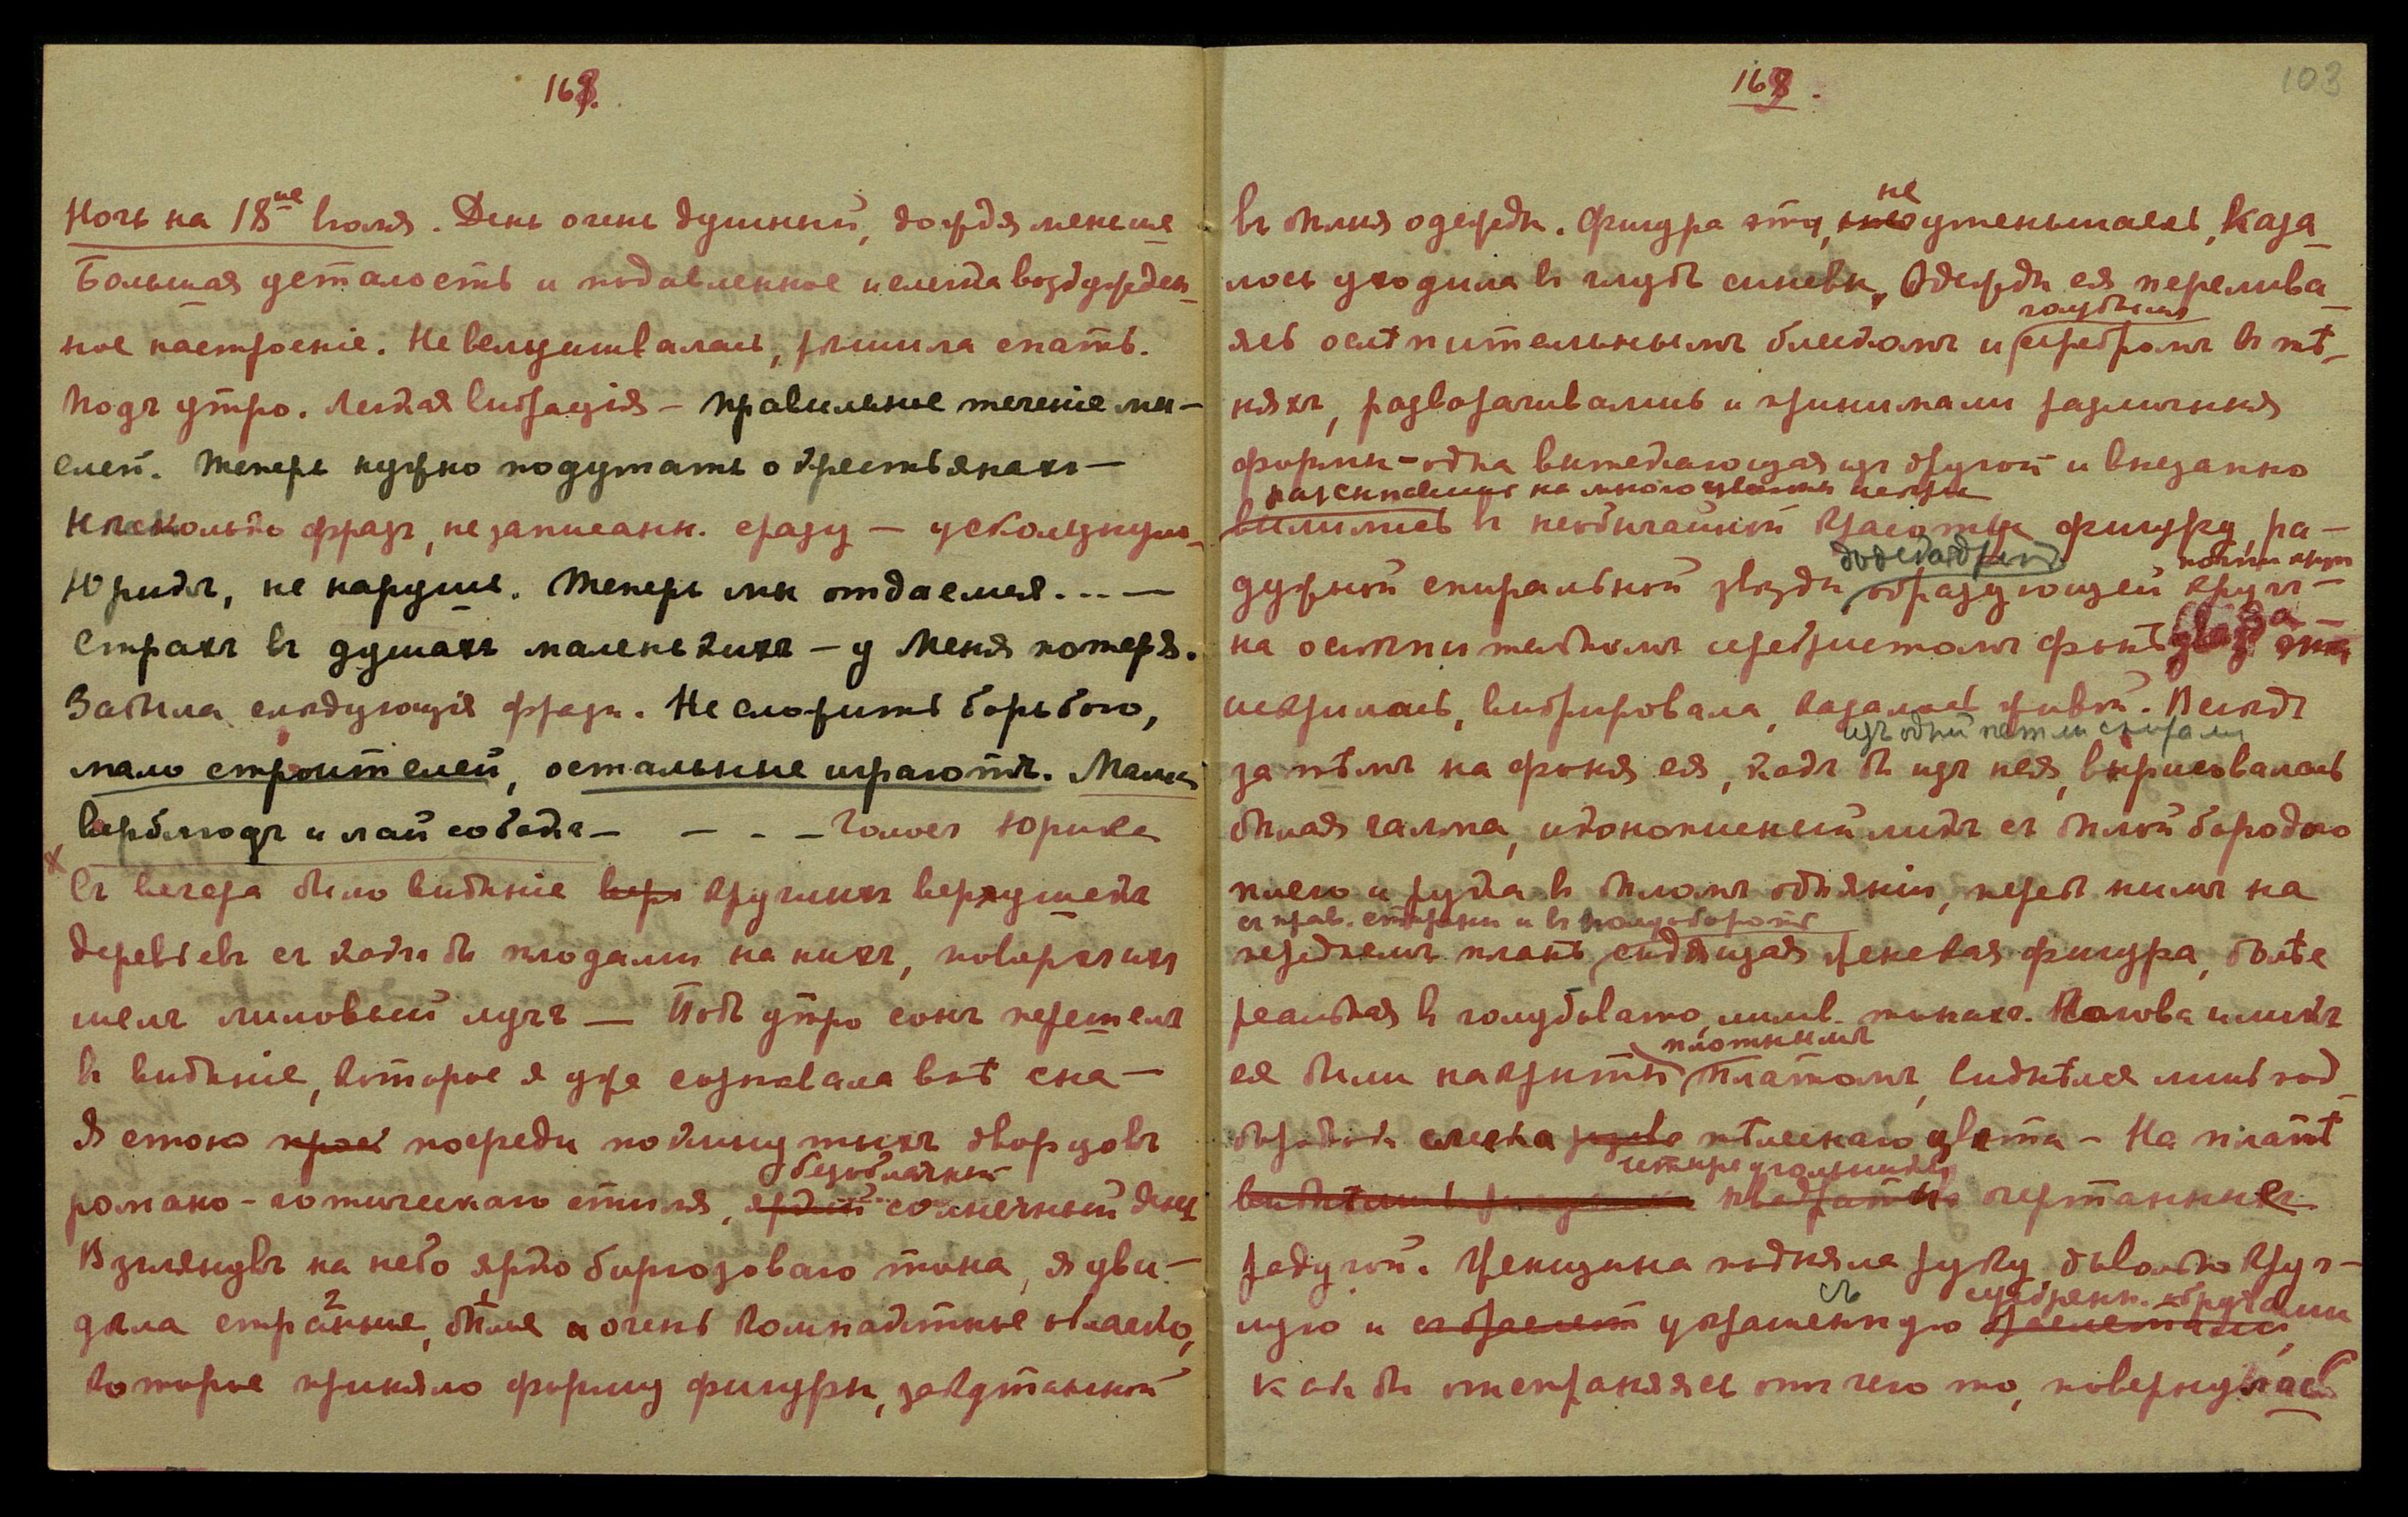 168.
Ночь на 18ое Iюля. День очень душный, дождя меньше
Большая усталость и подавленное и слегка возбужден-
ное настроенiе. Не вслушивалась, рѣшила спать.
Подъ утро. Легкая вибрацiя – правильное теченiе мы-
слей. Теперь нужно подумать о крестьянахъ –
Нѣсколько фразъ, не записанн. сразу – ускользнуло
Юрикъ, не наруши. Теперь мы отдаемся...–
Страхъ въ душахъ маленькихъ – у меня потеря.
Забыла слѣдующiя фразы. Не сложить борьбою,
мало строителей, остальные играютъ. Мама
верблюдъ и лай собакъ – – - – Голосъ Юрика
х Съ вечера было видѣнiе верх круглыхъ верхушекъ
деревьевъ съ какъ бы плодами на нихъ, поверхъ ихъ
шелъ лиловый лучъ — Подъ утро сонъ перешелъ
въ видѣнiе, которое я уже сознавала внѣ сна –
Я стою посреди покинутыхъ дворцовъ
безоблачный
романо-готическаго стиля, яркiй солнечный день
Взглянувъ на небо ярко бирюзоваго тона, я уви-
2 1
дѣла странные, бѣлые и очень компактные облако,
которое приняло форму фигуры, закутанной
169.
103
не
въ бѣлыя одежды. Фигура эта, уменьшаясь, каза-
лось уходила въ глубь синевы, Одежды ея перелива-
голубымъ
ясь ослѣпительнымъ блескомъ и серебромъ въ тѣ-
няхъ, разворачивались и принимали различныя
формы – одна вытекающая изъ другой и внезапно
разсыпавшись на многоцвѣтн. искры
вылились въ необычайной красоты фигуру ра-
почти кругъ
дужной спиральной звѣзды образующей кругъ –
на ослѣпительномъ серебристомъ фонѣ звѣзда эта
искрилась, вибрировала, казалась живой. Вслѣдъ
изъ одной петли спирали
за тѣмъ на фонѣ ея, какъ бы изъ нея, вырисовалась
бѣлая чалма, иконописный ликъ съ бѣлой бородою
плечо и рука въ бѣломъ одѣянiи, передъ нимъ на
съ прав. стороны и въ полуоборотѣ
переднемъ планѣ сидящая женская фигура, болѣе
реальная въ голубовато, лилов. тонахъ. Голова и ликъ
плотнымъ
ея были накрыты платомъ, виднѣлся лишь под-
бородокъ слегка тѣлеснаго цвѣта – На платѣ
четыреугольники
квадраты очертанные
радугой. Женщина подняла руку, довольно круп-
съ серебрянн. обручами
ную и съ браслет украшенную браслетами,
какъ бы отстраняясь отъ чего то, повернулась